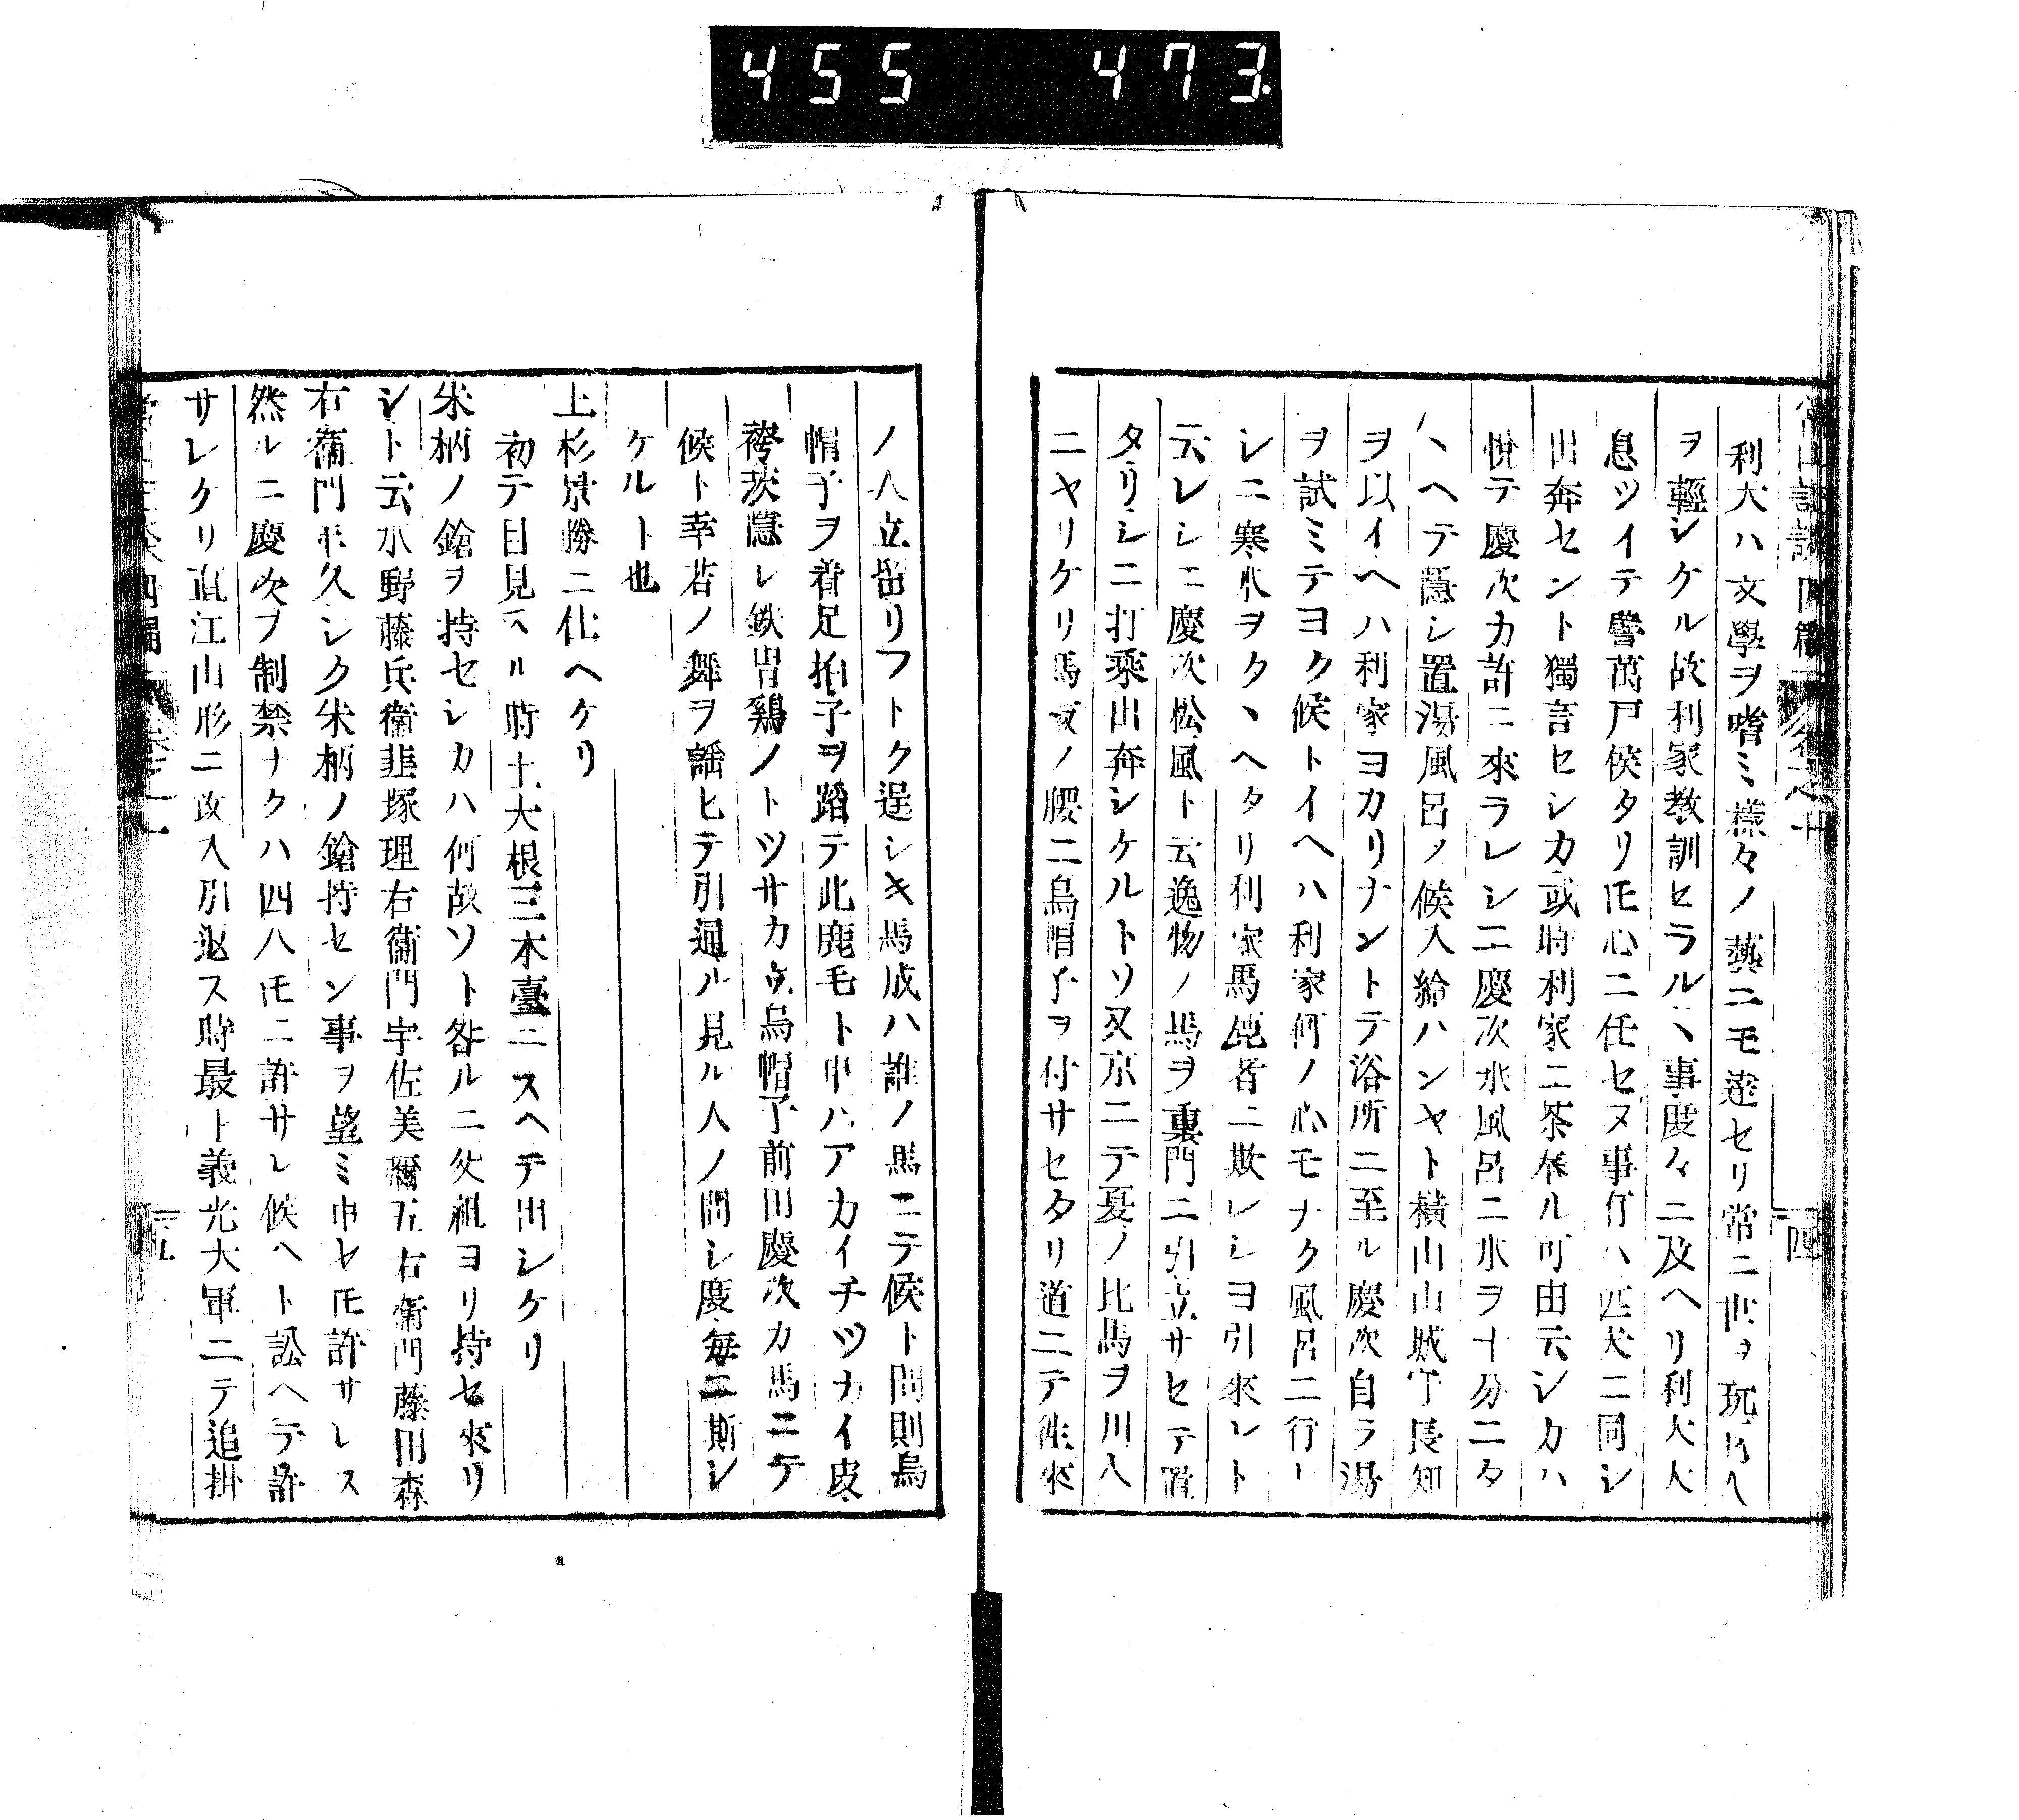 455 473
利大ハ文學ヲ嗜ミ様々ノ藝ニモ達セリ常ニ世ヲ玩ヒ人
ヲ輕シケル故利家教訓セラルヽ事度々ニ及ヘリ利大大
息ツイテ譬萬戸侯タリ𪜈心ニ任セヌ事有ハ匹夫ニ同シ
出奔セント獨言セシカ或時利家ニ茶奉ル可由云シカハ
悦テ慶次カ許ニ來ラレシニ慶次水風呂ニ水ヲ十分ニタ
ヽヘテ隱シ置湯風呂ノ候入給ハンヤト横山山城守長知
ヲ以イヘハ利家ヨカリナントテ浴所ニ至ル慶次自ラ湯
ヲ試ミテヨク候トイヘハ利家何ノ心モナク風呂ニ行レ
シニ寒水ヲタヽヘタリ利家馬鹿者ニ欺レシヨ引來レト
云レシニ慶次松風ト云逸物ノ馬ヲ裏門ニ引立サセテ置
タリシニ打乘出奔シケルトソ又京ニテ夏ノ比馬ヲ川入
ニヤリケリ馬取ノ腰ニ烏帽子ヲ付サセタリ道ニテ徃來
ノ人立留リフトク逞シキ馬成ハ誰ノ馬ニテ候ト問則烏
帽子ヲ着足拍子ヲ蹈テ此鹿毛ト申ハアカイチツカイ皮
袴茨隱レ鉄冑鷄ノトツサカ立烏帽子前田慶次カ馬ニテ
候ト幸若ノ舞ヲ謡ヒテ引通ル見ル人ノ問シ度毎ニ斯シ
ケルト也
上杉景勝ニ仕ヘケリ
初テ目見ヘル時土大根三本臺ニスヘテ出シケリ
朱柄ノ鎗ヲ持セシカハ何故ソト咎ルニ父祖ヨリ持セ來リ
シト云水野藤兵衛韮塚理右衛門宇佐美彌五右衛門藤田森
右衛門モ久シク朱柄ノ鎗持セン事ヲ望ミ申セ𪜈許サレス
然ルニ慶次ヲ制禁ナクハ四人𪜈ニ許サレ候ヘト訟ヘテ許
サレケリ直江山形ニ攻入引返ス時最ト義光大軍ニテ追掛